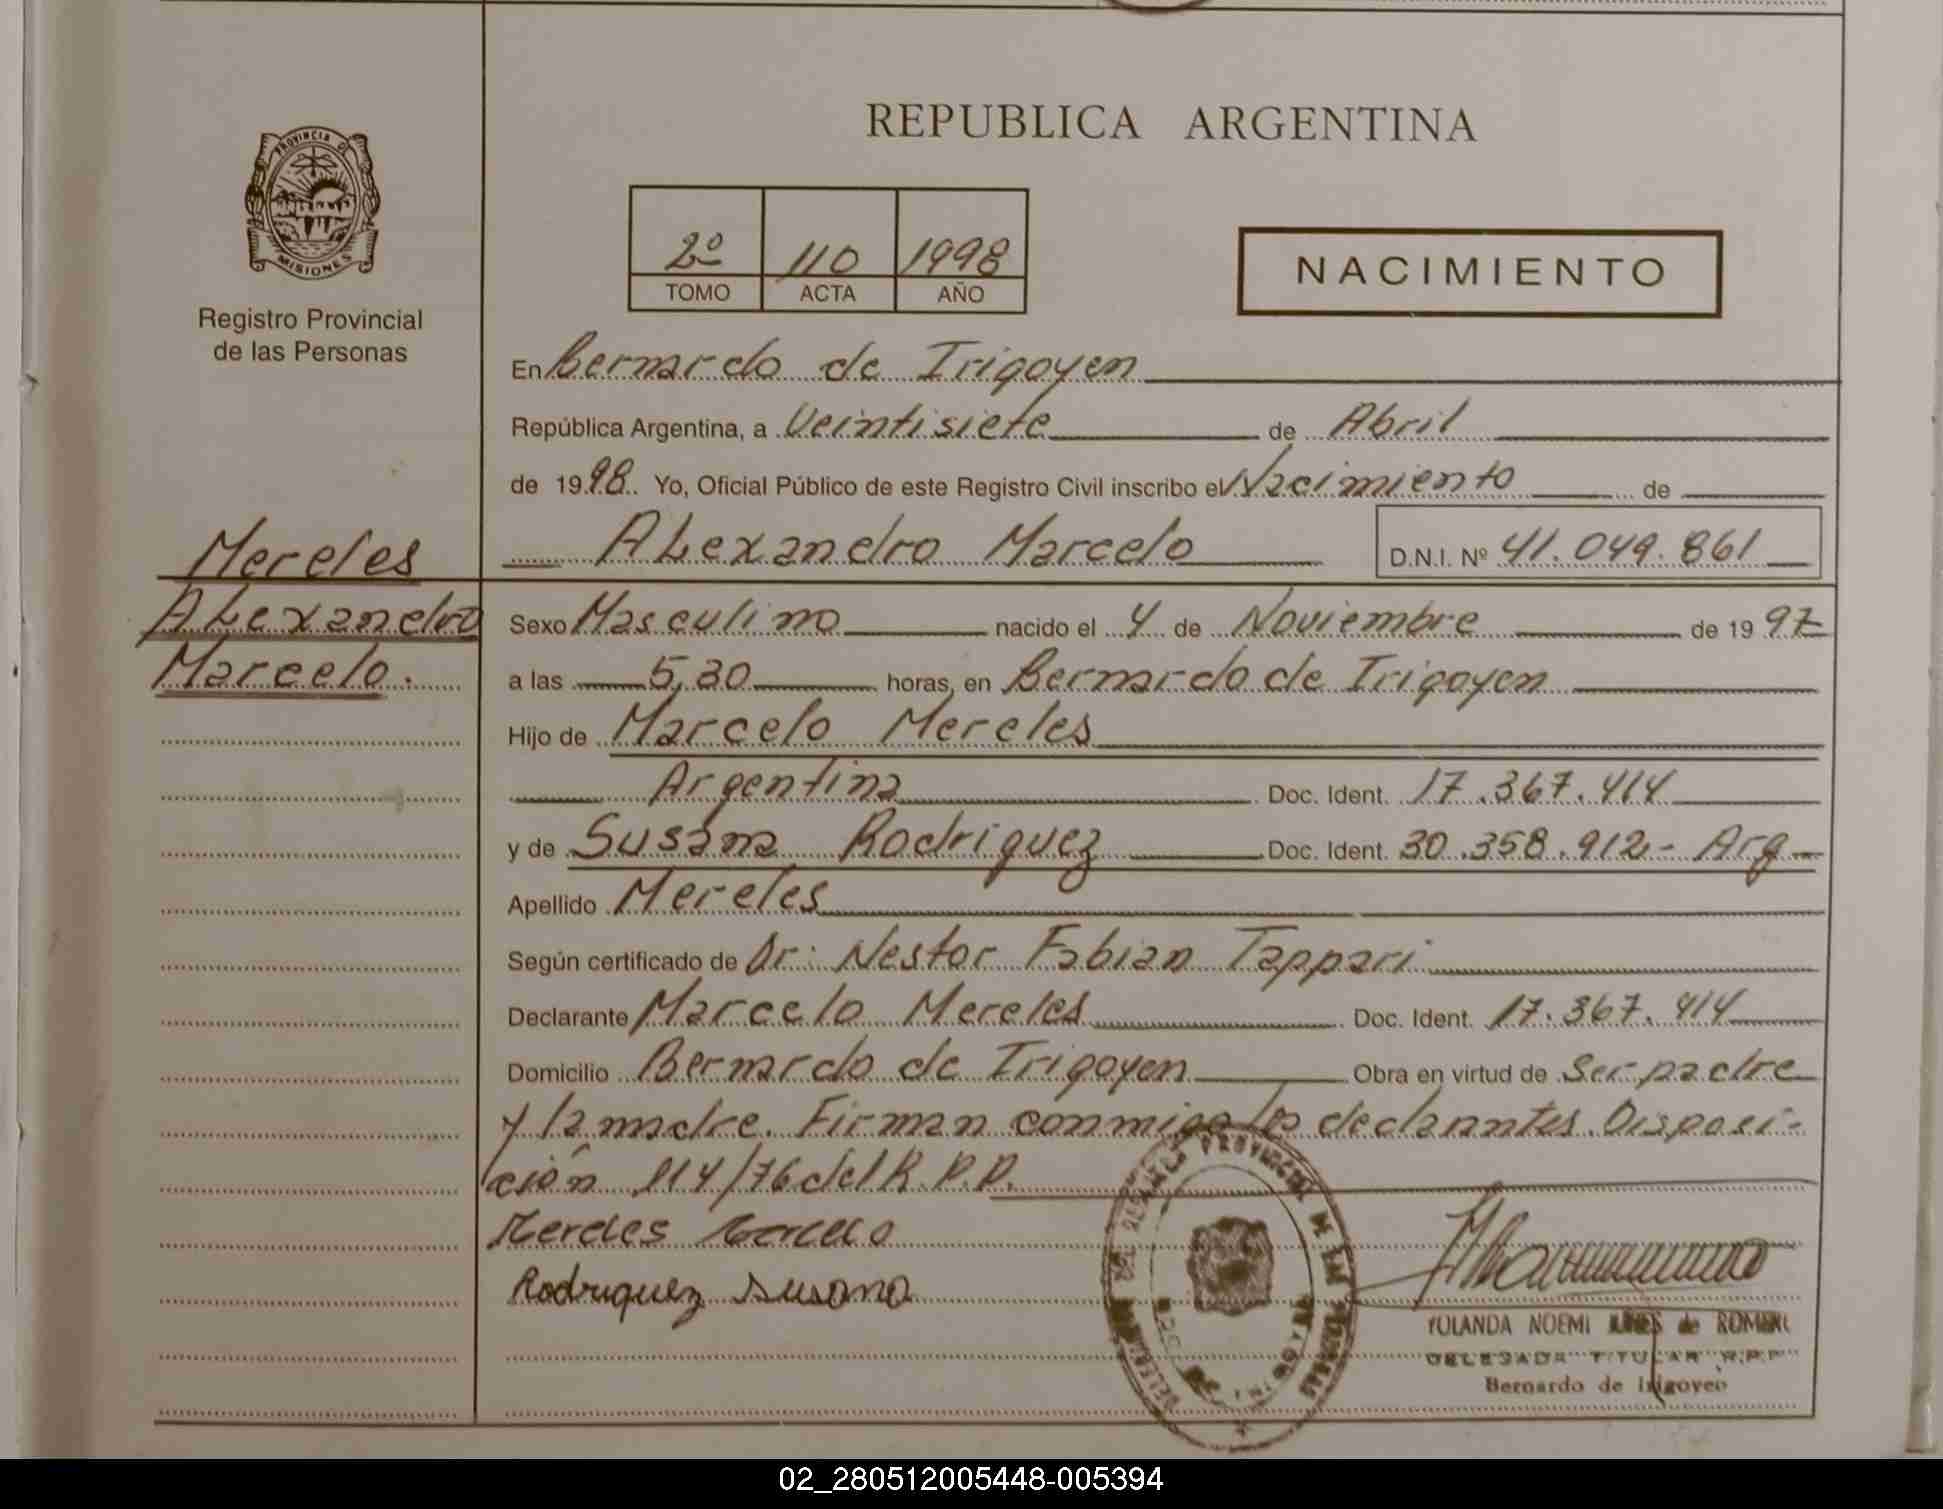 PROVINCIA D
MISIONES
Registro Provincial
de las Personas
REPUBLICA ARGENTINA
2º 110 1998
TOMO ACTA AÑO
NACIMIENTO
En Bernardo de Irigoyen
República Argentina, a Veintisiete de Abril
de 1998. Yo, Oficial Público de este Registro Civil inscribo el Nacimiento de
Mereles
ALexandro Marcelo D.N.I. Nº 41.049.861
ALexandro
Sexo Masculino nacido el 4 de Noviembre de 1997
Marcelo.
a las 5,30 horas, en Bernardo de Irigoyen
Hijo de Marcelo Mereles
Argentina Doc. Ident. 17.367.414
y de Susana Rodriguez Doc. Ident. 30.358.912- Arg-
Apellido Mereles
Según certificado de Dr: Nestor Fabian Tappari
Declarante Marcelo Mereles Doc. Ident. 17.367.414
Domicilio Bernardo de Irigoyen Obra en virtud de Ser padre
y la madre. Firman conmigo los declanntes. Disposi-
ción 114/76 del R.P.P.
Mereles Marcelo
Rodriguez Susana
PROVINCIAL DE LAS
YOLANDA NOEMI de
DELEGADA TITULAR R.P.P
Bernardo de Irigoyen
02_280512005448-005394